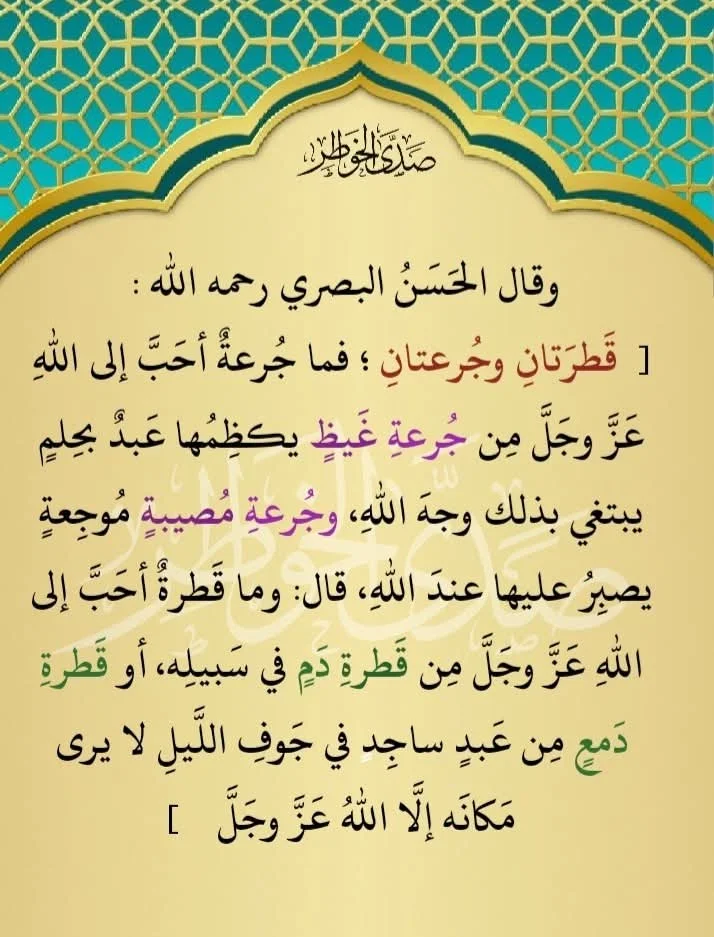 صَدَى الخَوَاطِر
وقال الحَسَنُ البصري رحمه الله :
[ قَطرَتانِ وجُرعتانِ ؛ فما جُرعةٌ أحَبَّ إلى اللهِ
عَزَّ وجَلَّ مِن جُرعةِ غَيظٍ يكظِمُها عَبدٌ بحِلمٍ
يبتغي بذلك وجهَ اللهِ، وجُرعةِ مُصيبةٍ مُوجِعةٍ
يصبِرُ عليها عندَ اللهِ، قال: وما قَطرةٌ أحَبَّ إلى
اللهِ عَزَّ وجَلَّ مِن قَطرةِ دَمٍ في سَبيلِه، أو قَطرةِ
دَمعٍ مِن عَبدٍ ساجِدٍ في جَوفِ اللَّيلِ لا يرى
مَكانَه إلَّا اللهُ عَزَّ وجَلَّ ]
صَدَى الخَوَاطِر